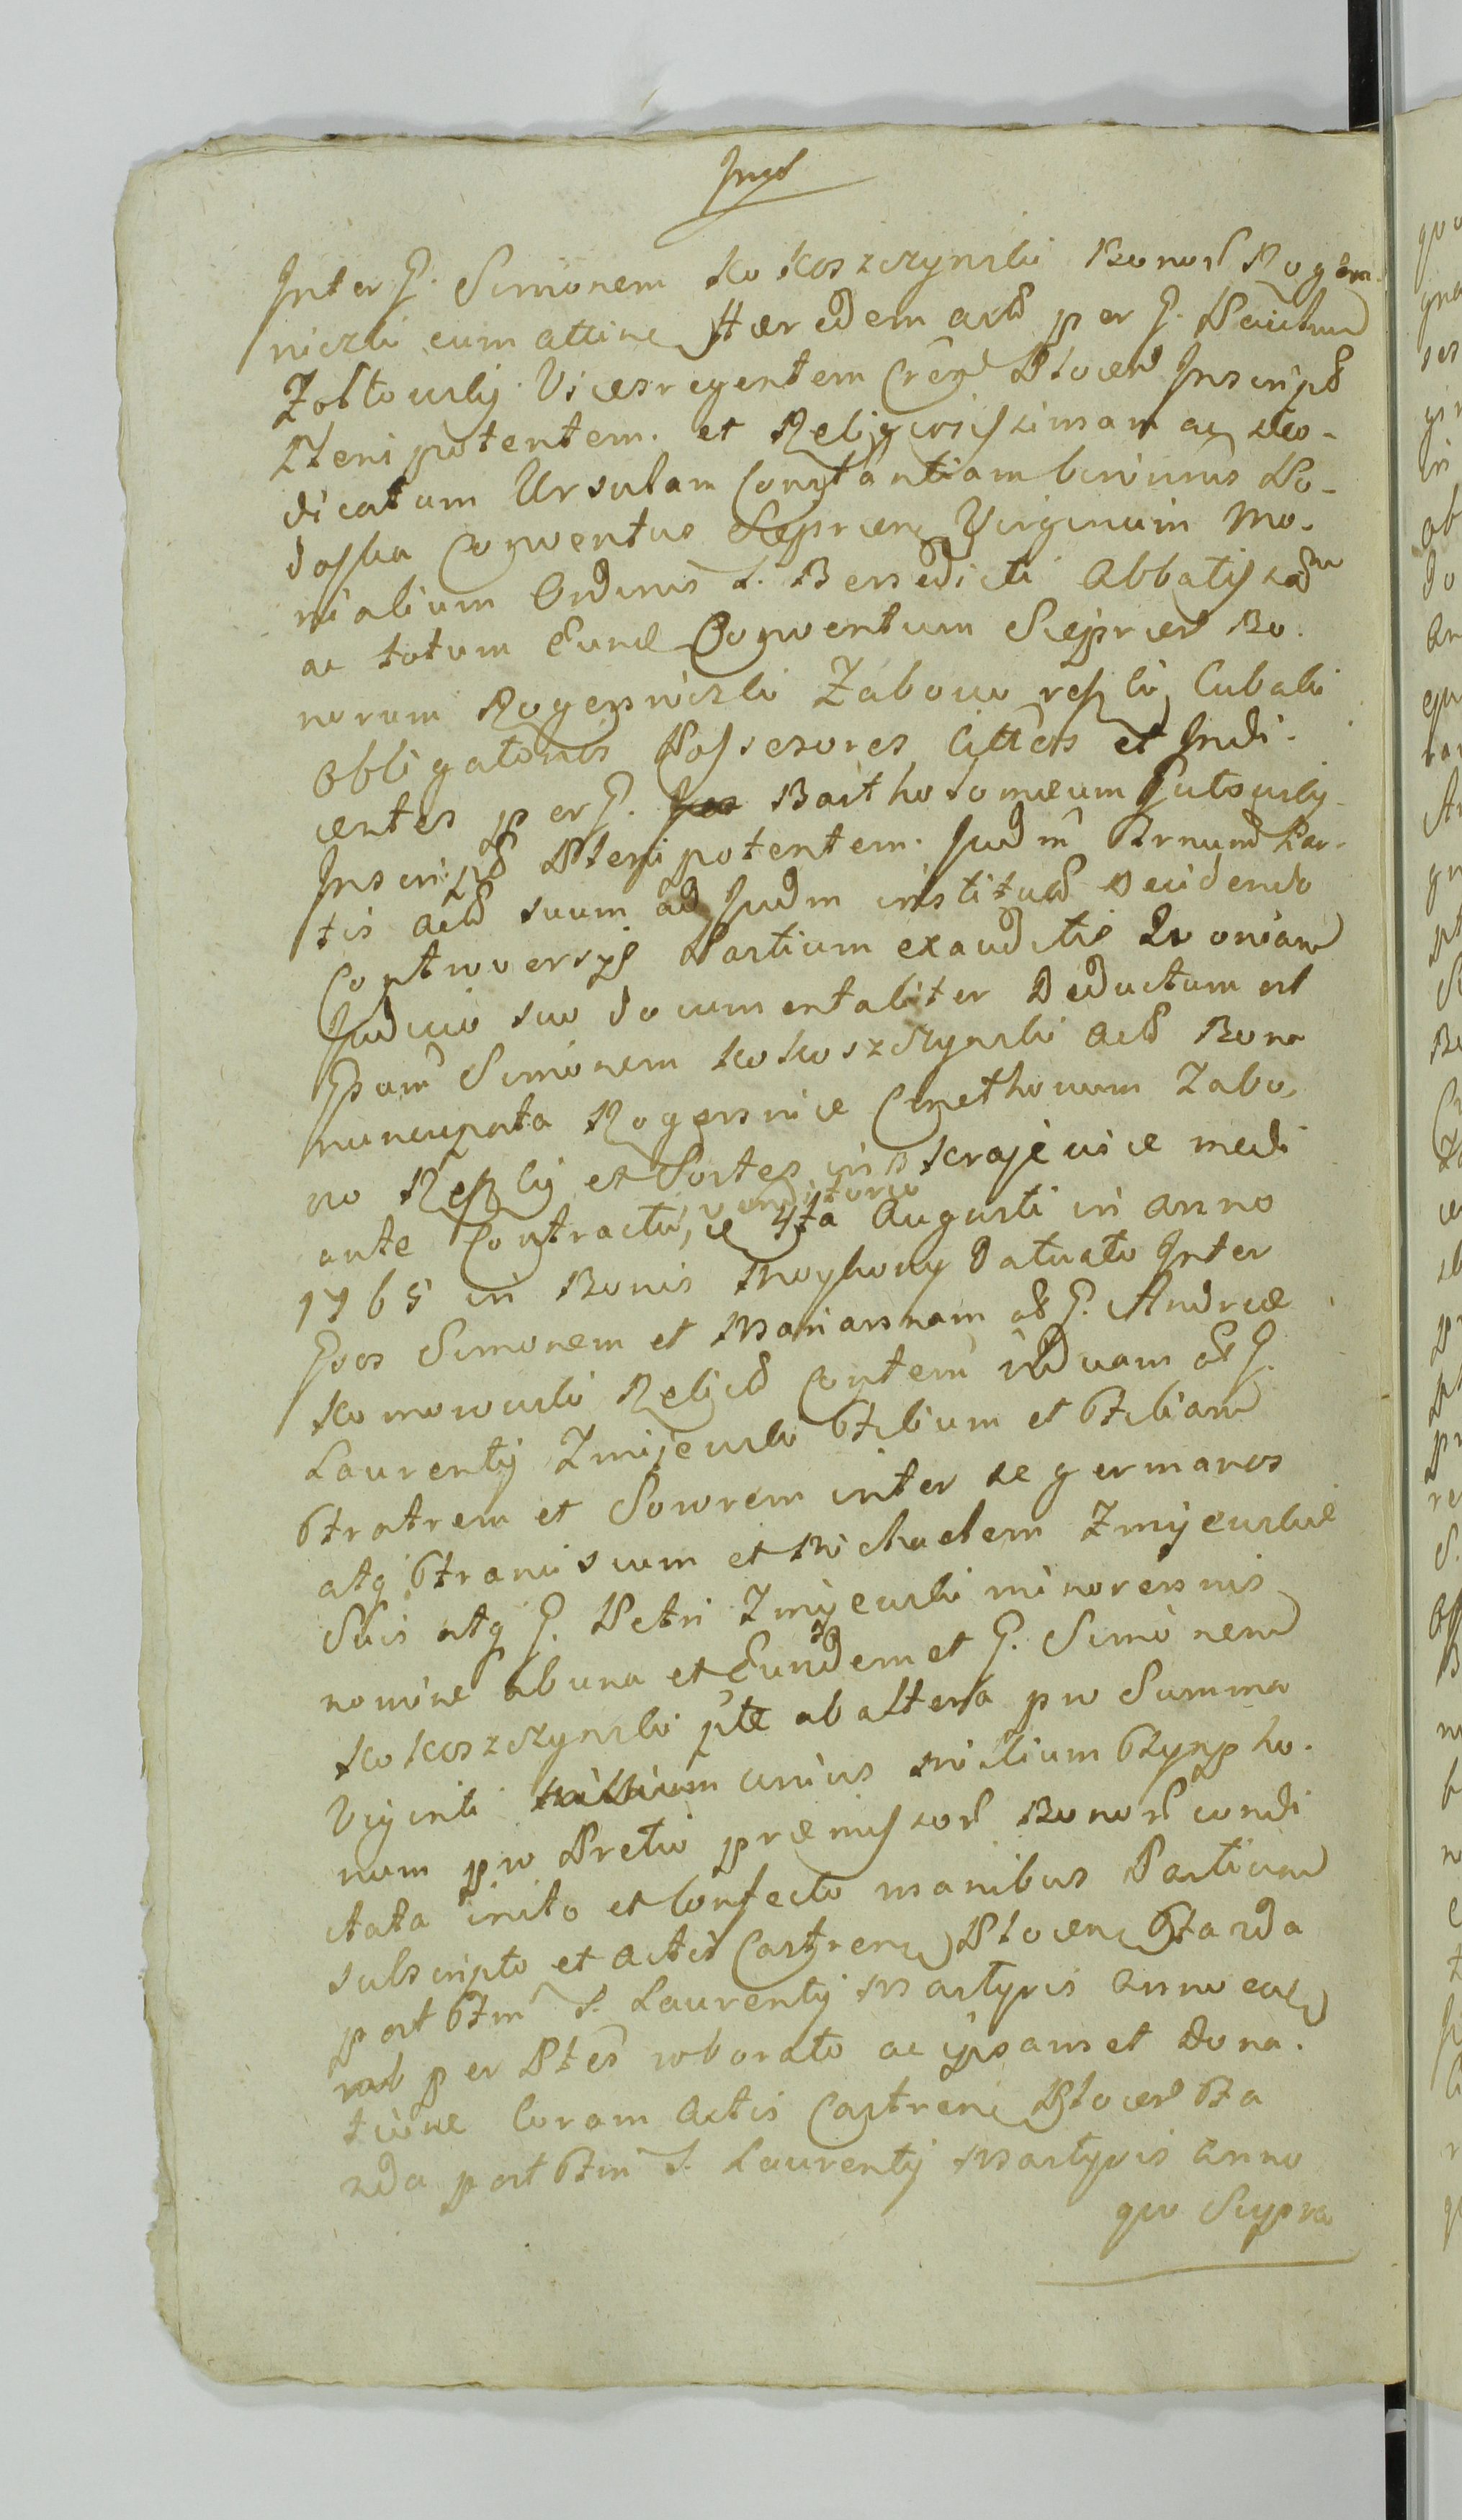 Inter G. Simonem Kokoszczynski Bonor Rogen
niczki cum attine Hæredem actd per G. Paulum
Zoltowskij Vicesregentem Cren Plocen Inscripd
Plenipotentem. et Religiosissimam ac Deo-
dicatam Ursulam Constantiam Do-
Conventus Sieprcen Virginum Mo-
nialium Ordinis S. Benedicti Abbatissam
ac totum Eund Conventum Sieprcen Bo.
norum Rogenniczki Zabowo respli Cubali
Obligatorios Possesores Cittos et Indi-
centes per G. Bartholomæum Gutowskij
Inscripd Plenipotentem. Judm Prnum Par-
tis actd suum ad Judm institud Decidendo
Controversys Partium exauditis Quoniam
Judicio suo documentaliter Deductum est
Gsum Simonem Kokoszczynski actd Bona
nuncupata Rogennice Cmethonum Zabo,
wo Respli et Sortes in Krajewice medi
ante Contractu, venditorio 4ta Augusti in anno
1765 in Bonis datuato Inter
Gsos Simonem et Mariannam od G. Andreæ
Komorowski Relicd Contem viduam od G.
Laurentij Zmijewski Filium et Filiam
Fratrem et Sororem inter se germanos
atq Franciscum et Michaelem Zmijewskie
Suis atq G. Petri Zmijewski minorennis
nomine ab una et Eundem et G. Simonem
Kokoszczynski pte ab altera pro Summa
Viginti unius millium Flnpho.
num pro Pretio præmissor Bonor condi
ctata inito et Confecto manibus Partium
subscripto et Actis Castren Plocen Fta 2da
post Ftm S. Laurentij Martyris Anno eod
per Ptes roborato ac ipsamet Dona.
tione Coram Actis Castren Plocen Fta
2da post Ftm S. Laurentij Martyris Anno
quo Supra